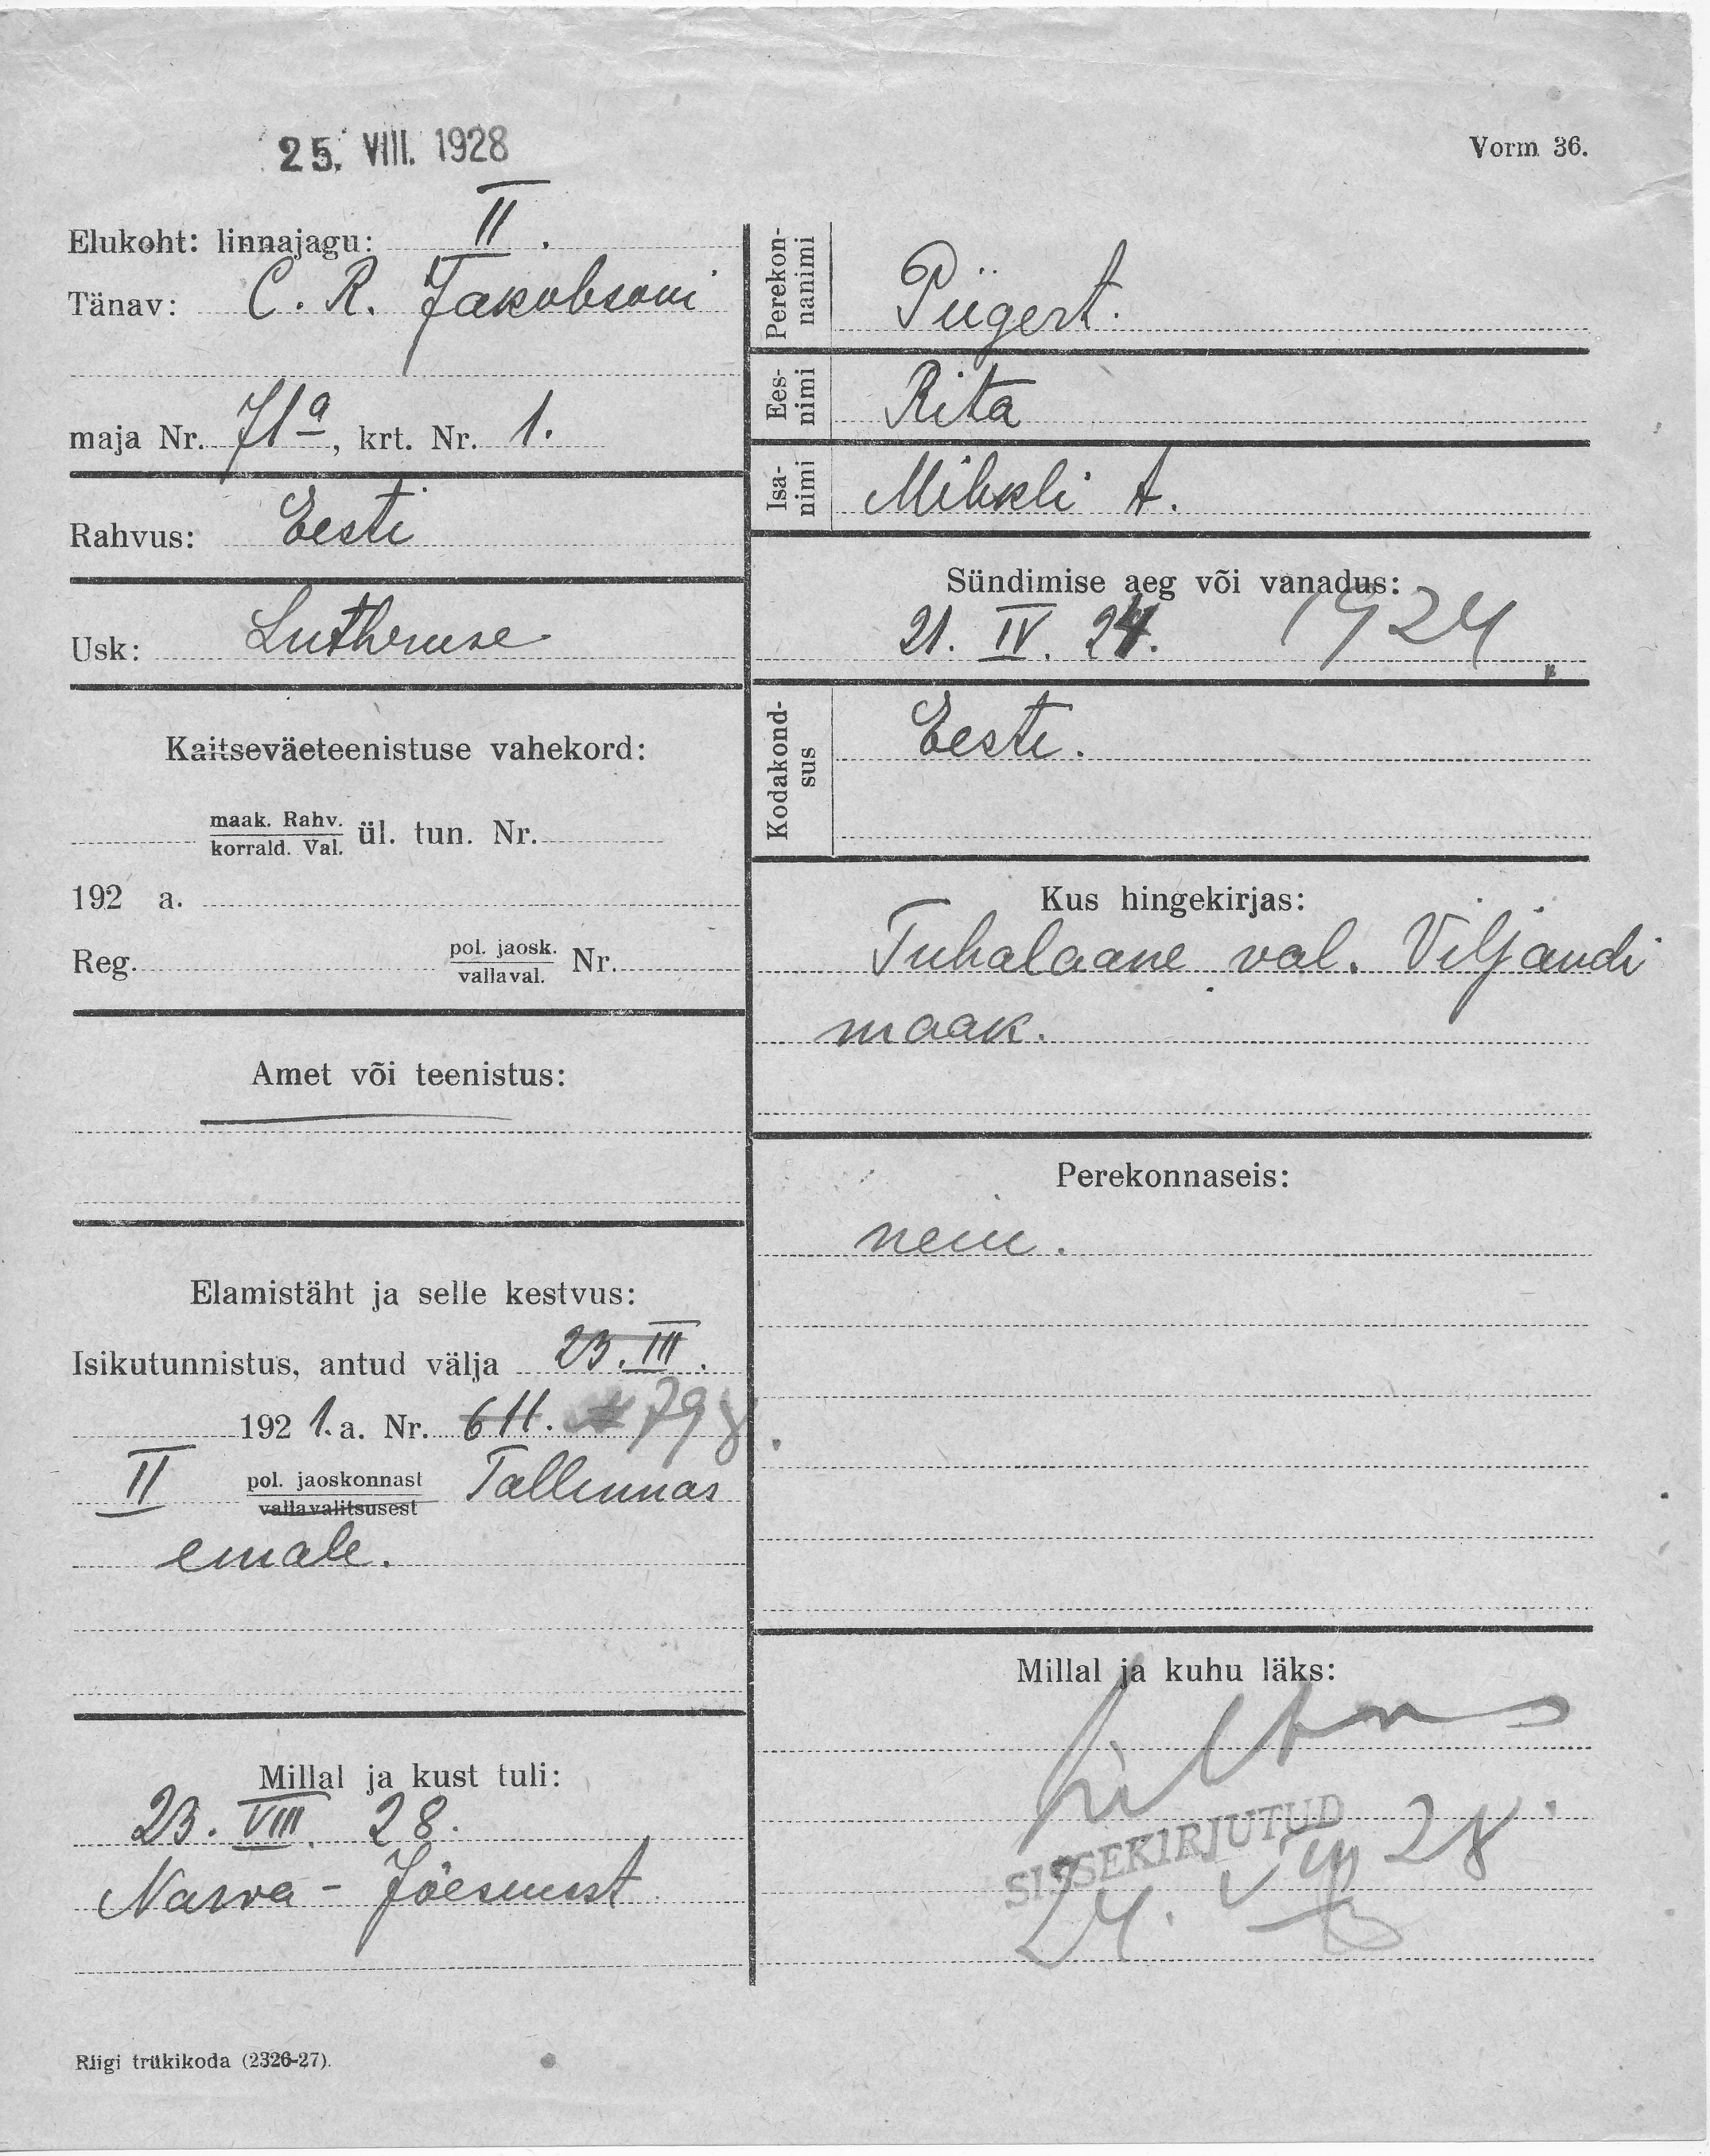 25. VIII. 1928
Vorm 36.
Elukoht: linnajagu: II.
Tänav: C. R. Jakobsoni
maja Nr. 71a, krt. Nr. 1.
Rahvus: Eesti
Usk: Lutheruse
Kaitseväeteenistuse vahekord:
maak. Rahv.
korrald. Val. ül. tun. Nr.
192 a.
Reg. pol. jaosk.
vallaval. Nr.
Amet või teenistus:
Elamistäht ja selle kestvus:
Isikutunnistus, antud välja 23. III.
192 1. a. Nr. 611. 798
II pol. jaoskonnast Tallinnas
vallavalitsusest
emale.
Millal ja kust tuli:
23. VIII. 28.
Narva-Jõesuust
Riigi trükikoda (2326-27).
Perekon-
nanimi Pügert.
Ees-
nimi Rita
Isa-
nimi Mihkli t.
Sündimise aeg või vanadus:
21. IV. 24. 1924
Kodakond-
sus Eesti.
Kus hingekirjas:
Tuhalaane val. Viljandi
maak.
Perekonnaseis:
neiu.
Millal ja kuhu läks:
SISSEKIRJUTUD
24. VIII 28.